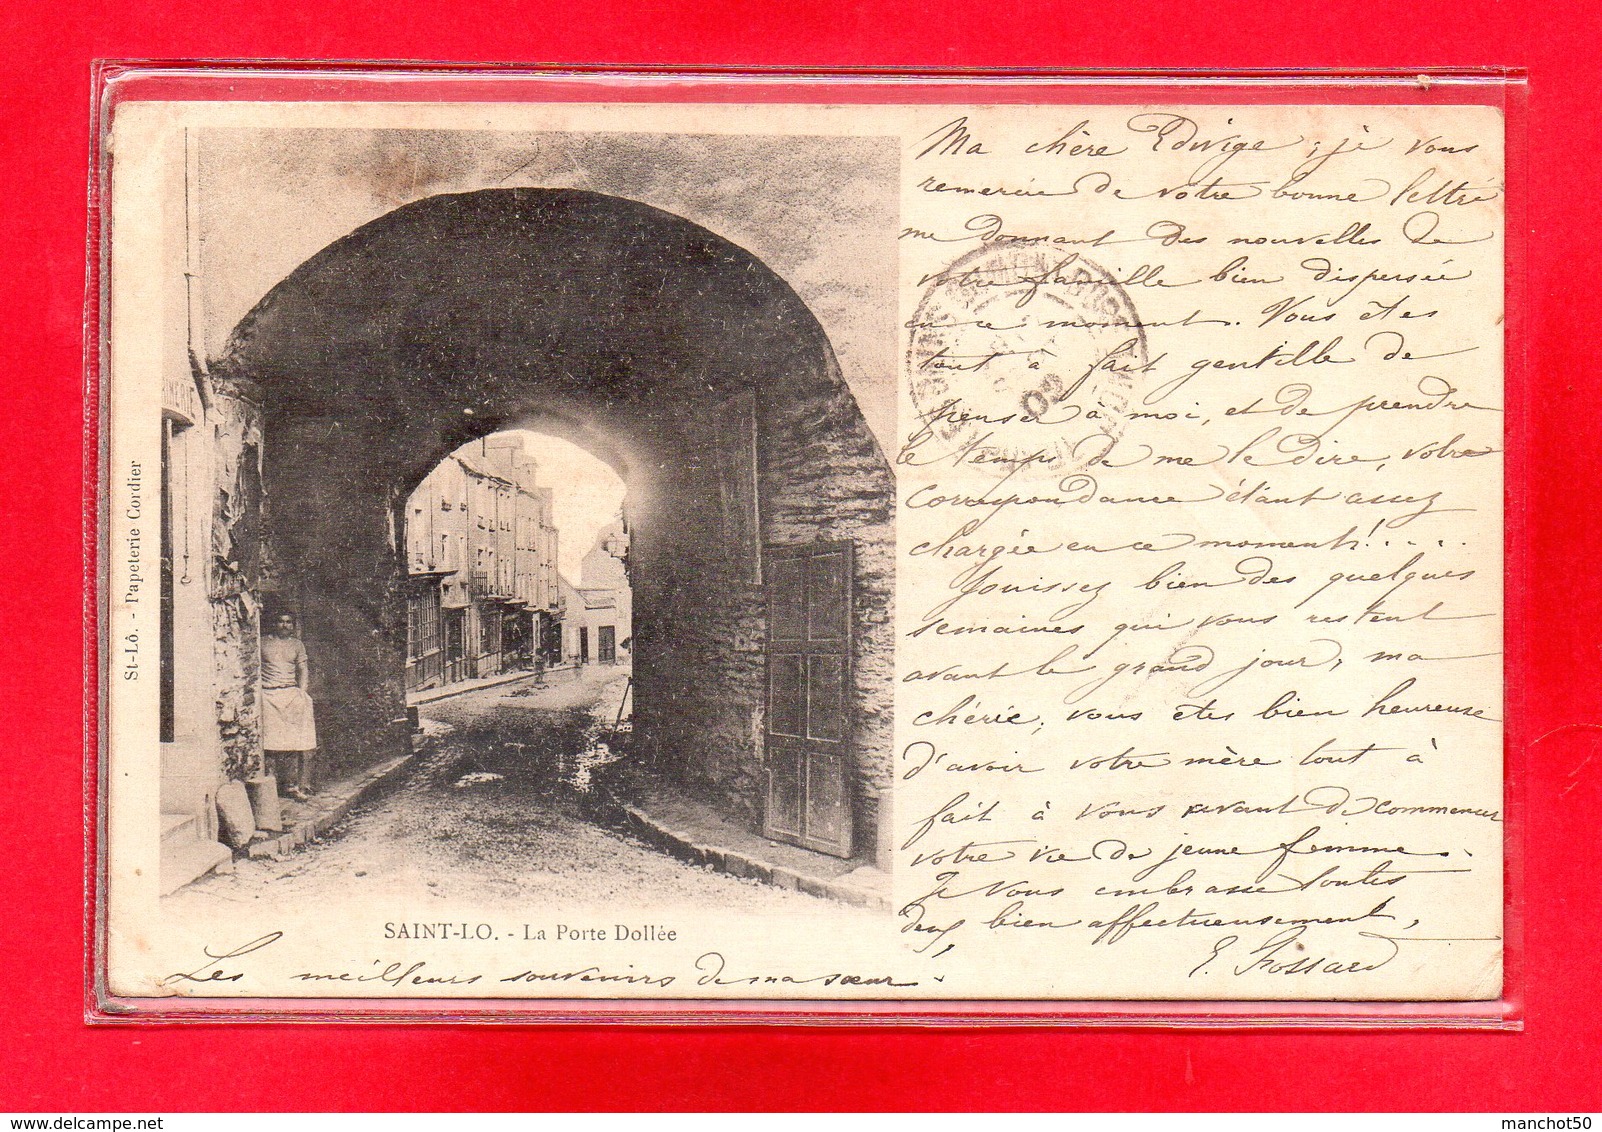 Ma chère Edwige, je vous
remercie de votre bonne lettre
me donnant des nouvelles de
votre famille bien dispersée
en ce moment. Vous êtes
tout à fait gentille de
penser à moi, et de prendre
le temps de me le dire, votre
correspondance étant assez
chargée en ce moment!....
Jouissez bien des quelques
semaines qui vous restent
avant le grand jour, ma
chérie, vous êtes bien heureuse
d'avoir votre mère tout à
fait à vous avant de commencer
votre vie de jeune femme.
Je vous embrasse toutes
deux bien affectueusement,
E. Frossard
Les meilleurs souvenirs de ma sœur.
SAINT-LO. - La Porte Dollée
St-Lô. - Papeterie Cordier
09
manchot50